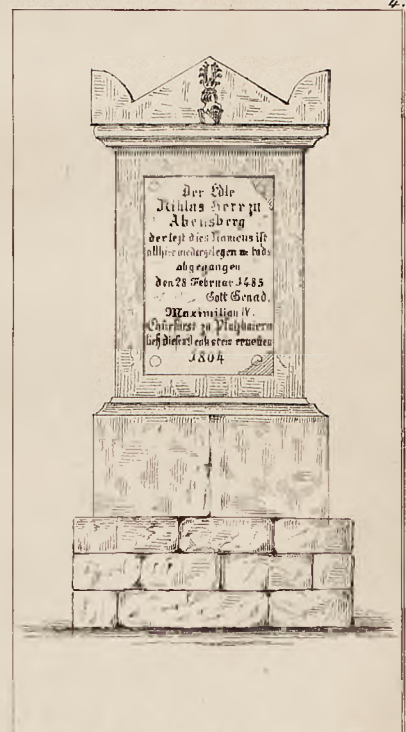 4.
Der Edle
Niklas Herr zu
Abensberg
der lezt dies Namens ist
allhier niedergelegen u: tods
abgegangen
den 28 Februar 1485
Gott Genad.
Maximilian IV.
Churfürst zu Pfalzbaiern
ließ diesen Denkstein erneuen
1804